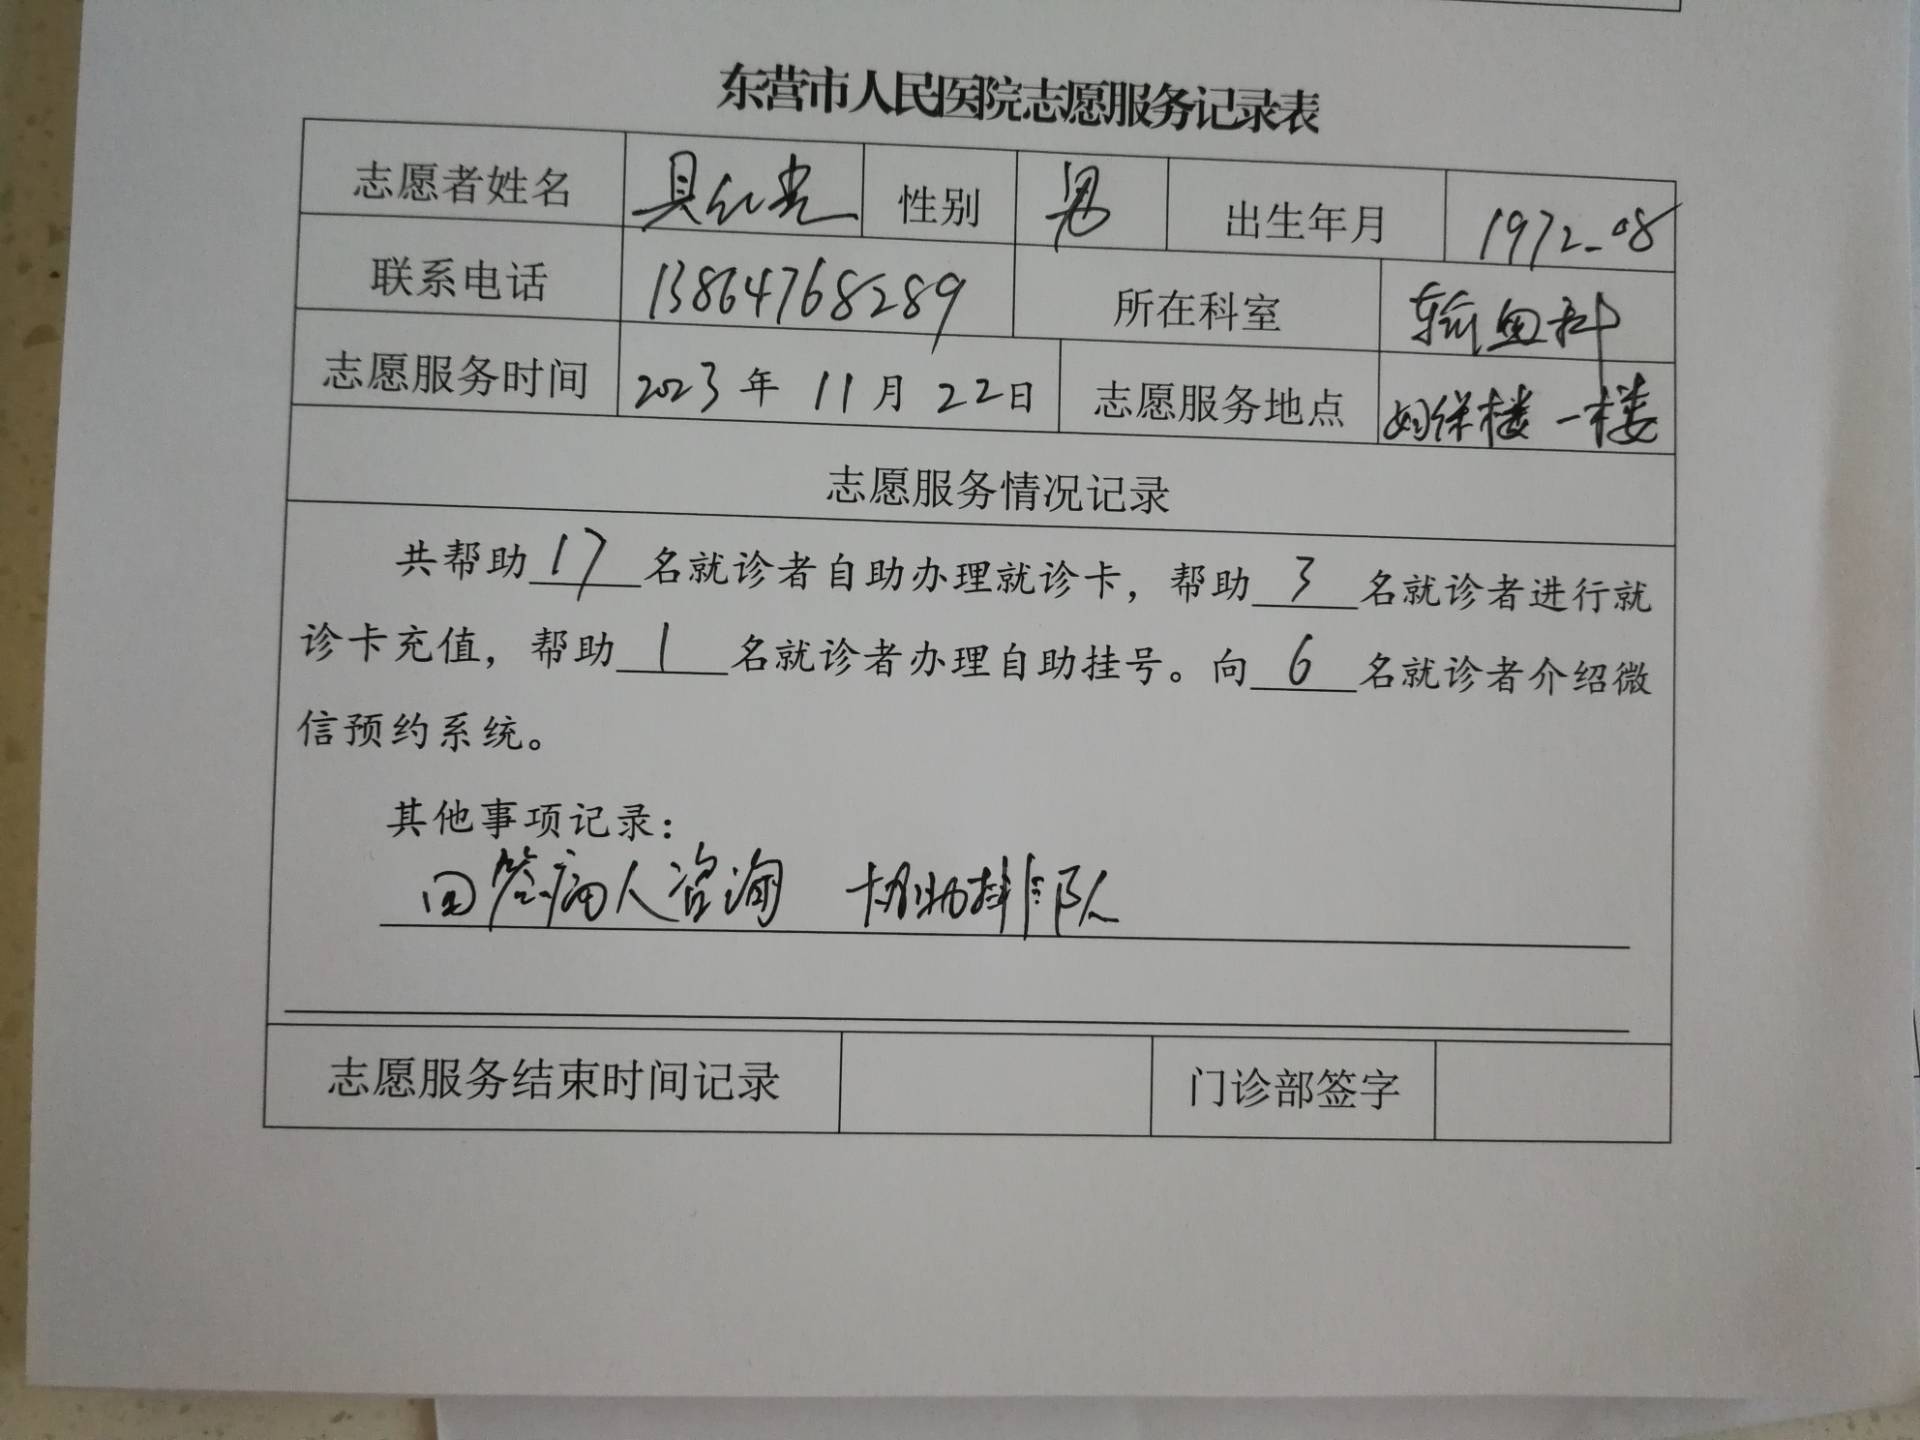 东营市人民医院志愿服务记录表
志愿者姓名 具红光 性别 男 出生年月 1972-08
联系电话 13864768289 所在科室 输血科
志愿服务时间 2023年 11月 22日 志愿服务地点 妇保楼 一楼
志愿服务情况记录
共帮助17名就诊者自助办理就诊卡，帮助3名就诊者进行就
诊卡充值，帮助1名就诊者办理自助挂号。向6名就诊者介绍微
信预约系统。
其他事项记录：
回答病人咨询 协助排队
志愿服务结束时间记录 门诊部签字